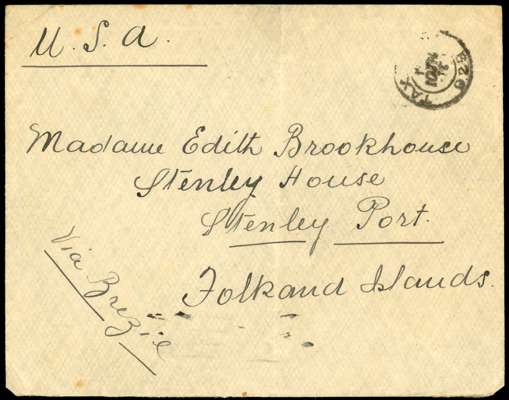 U. S. A.
TAX
928
Madame Edith Brookhouse
Stenley House
Stenley Port.
Folkand Islands.
Via Brezil